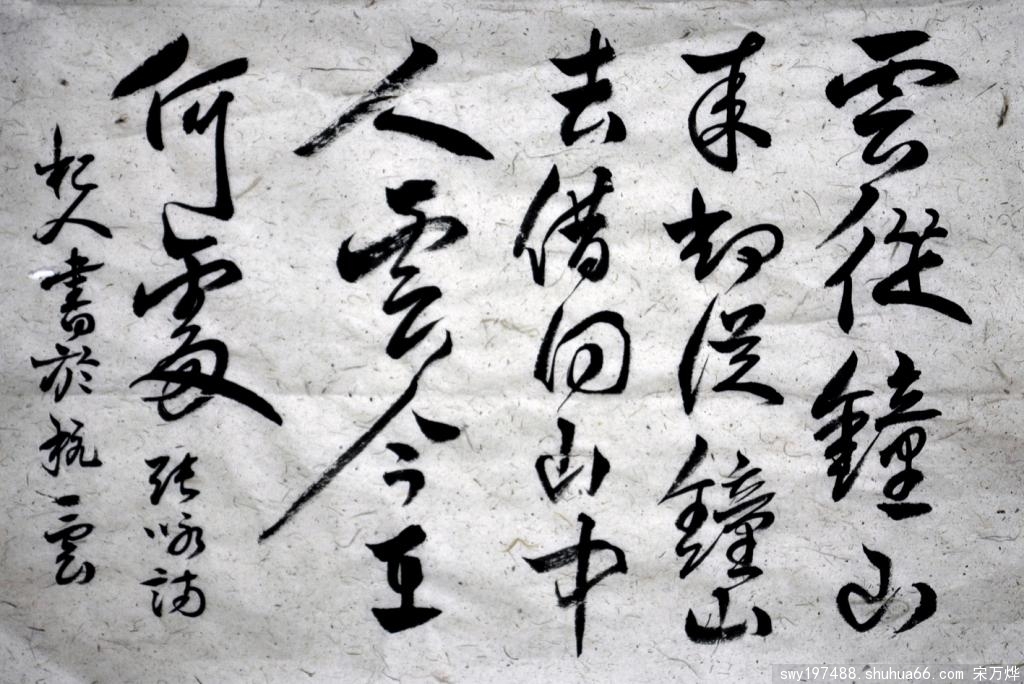 雲從鐘山
来却從鐘山
去借问山中
人雲今在
何處 張咏
人書於雲
swy197488. shuhua66. com 宋万烨